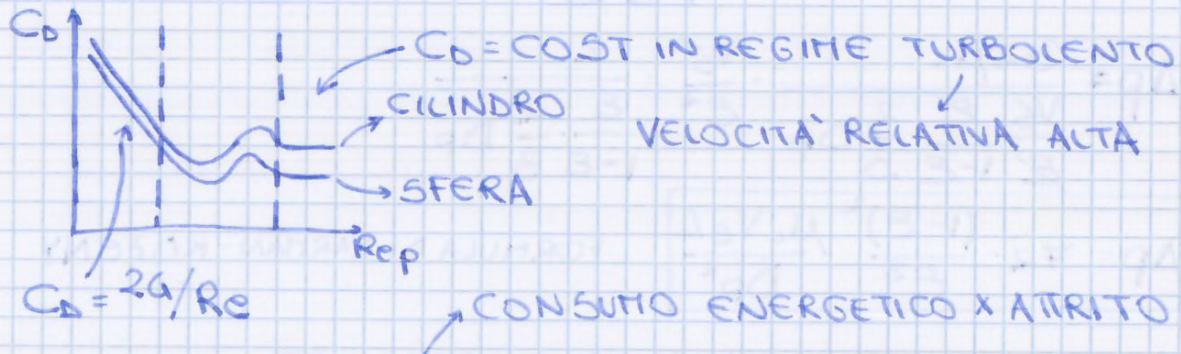 C_D
C_D = COST IN REGIME TURBOLENTO
CILINDRO
VELOCITÀ RELATIVA ALTA
SFERA
Re_p
C_D = 24/Re
CONSUMO ENERGETICO X ATTRITO